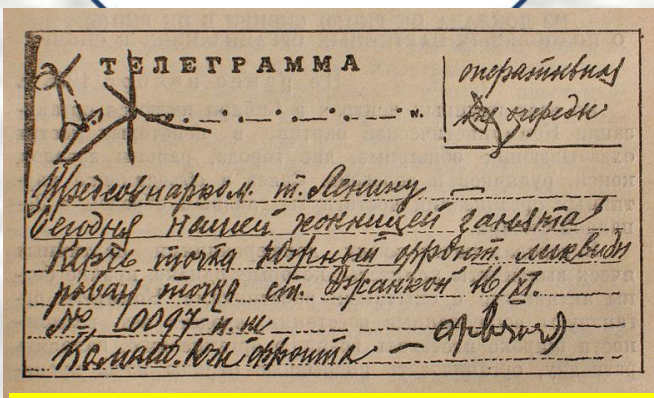 ТЕЛЕГРАММА
оперативная
вне очереди
Предсовнарком т. Ленину —
Сегодня нашей конницей занята
Керчь точка Южный фронт ликвиди
рован точка ст. Джанкой 16/XI.
№ 0097 н. ж
Команд. Юж фронта — Фрунзе